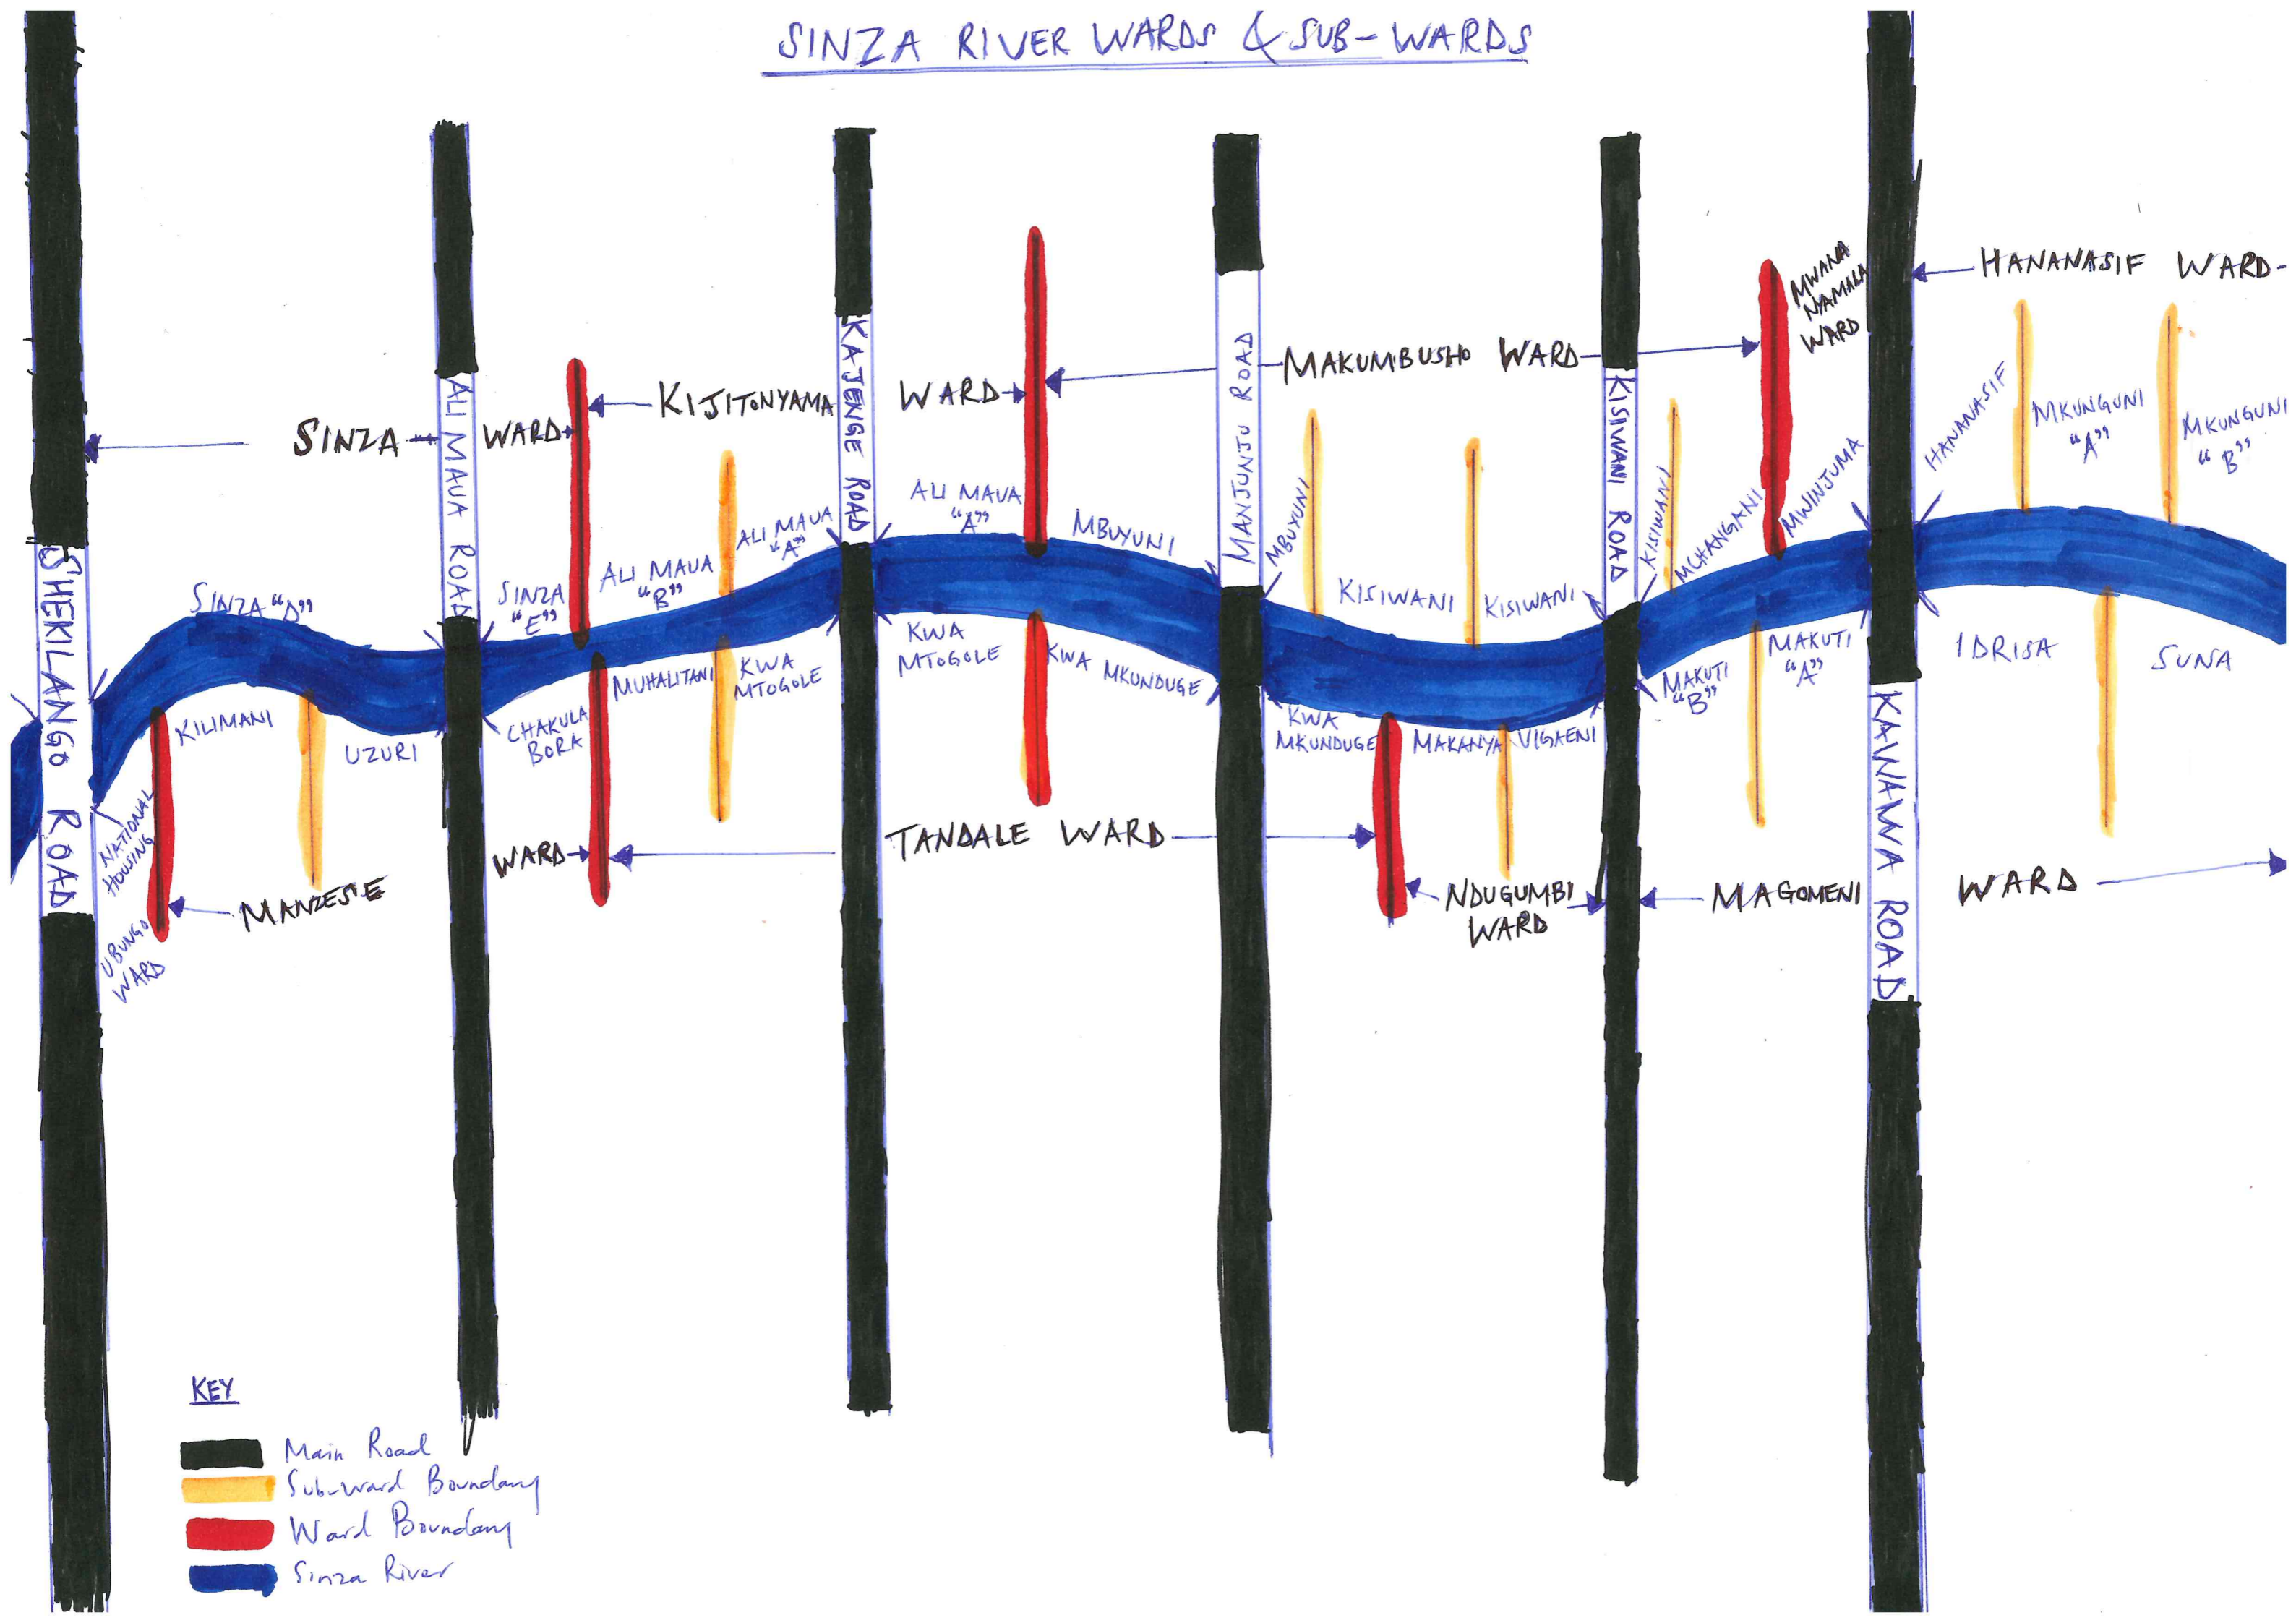 SINZA RIVER WARDS & SUB-WARDS
SHEKILANGO ROAD
ALI MAUA ROAD
KAJENGE ROAD
MANJUNJU ROAD
KISIWANI ROAD
KAWAWA ROAD
SINZA WARD
KIJITONYAMA WARD
MAKUMBUSHO WARD
MWANA
NYAMALA
WARD
HANANASIF WARD-
SINZA "D"
SINZA
"E"
ALI MAUA
"B"
ALI MAUA
"A"
ALI MAUA
"A"
MBUYUNI
MBUYUNI
KISIWANI
KISIWANI
KISIWANI
MCHANGANI
MWINJUMA
HANANASIF
MKUNGUNI
"A"
MKUNGUNI
"B"
NATIONAL
HOUSING
KILIMANI
UZURI
CHAKULA
BORA
MUHALITANI
KWA
MTOGOLE
KWA
MTOGOLE
KWA MKUNDUGE
KWA
MKUNDUGE
MAKANYA
VIGAENI
MAKUTI
"B"
MAKUTI
"A"
IDRISA
SUNA
UBUNGO
WARD
MANZESE WARD
TANDALE WARD
NDUGUMBI
WARD
MAGOMENI WARD
KEY
Main Road
Sub-ward Boundary
Ward Boundary
Sinza River